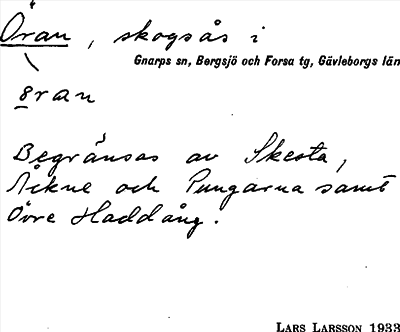 Öran, skogsås i
Gnarps sn, Bergsjö och Forsa tg, Gävleborgs län
öran
Begränsas av Skesta,
Åckne och Pungarna samt
Övre Haddång.
LARS LARSSON 1933